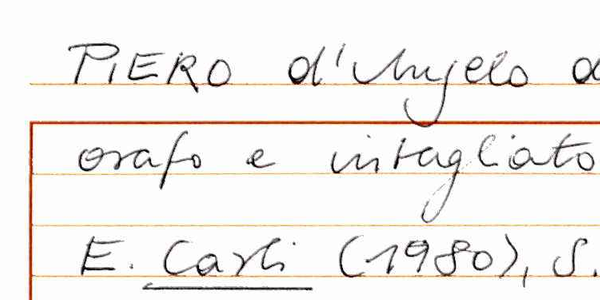 PIERO d'Angelo d
orafo e intagliato
E. Carli (1980), S.